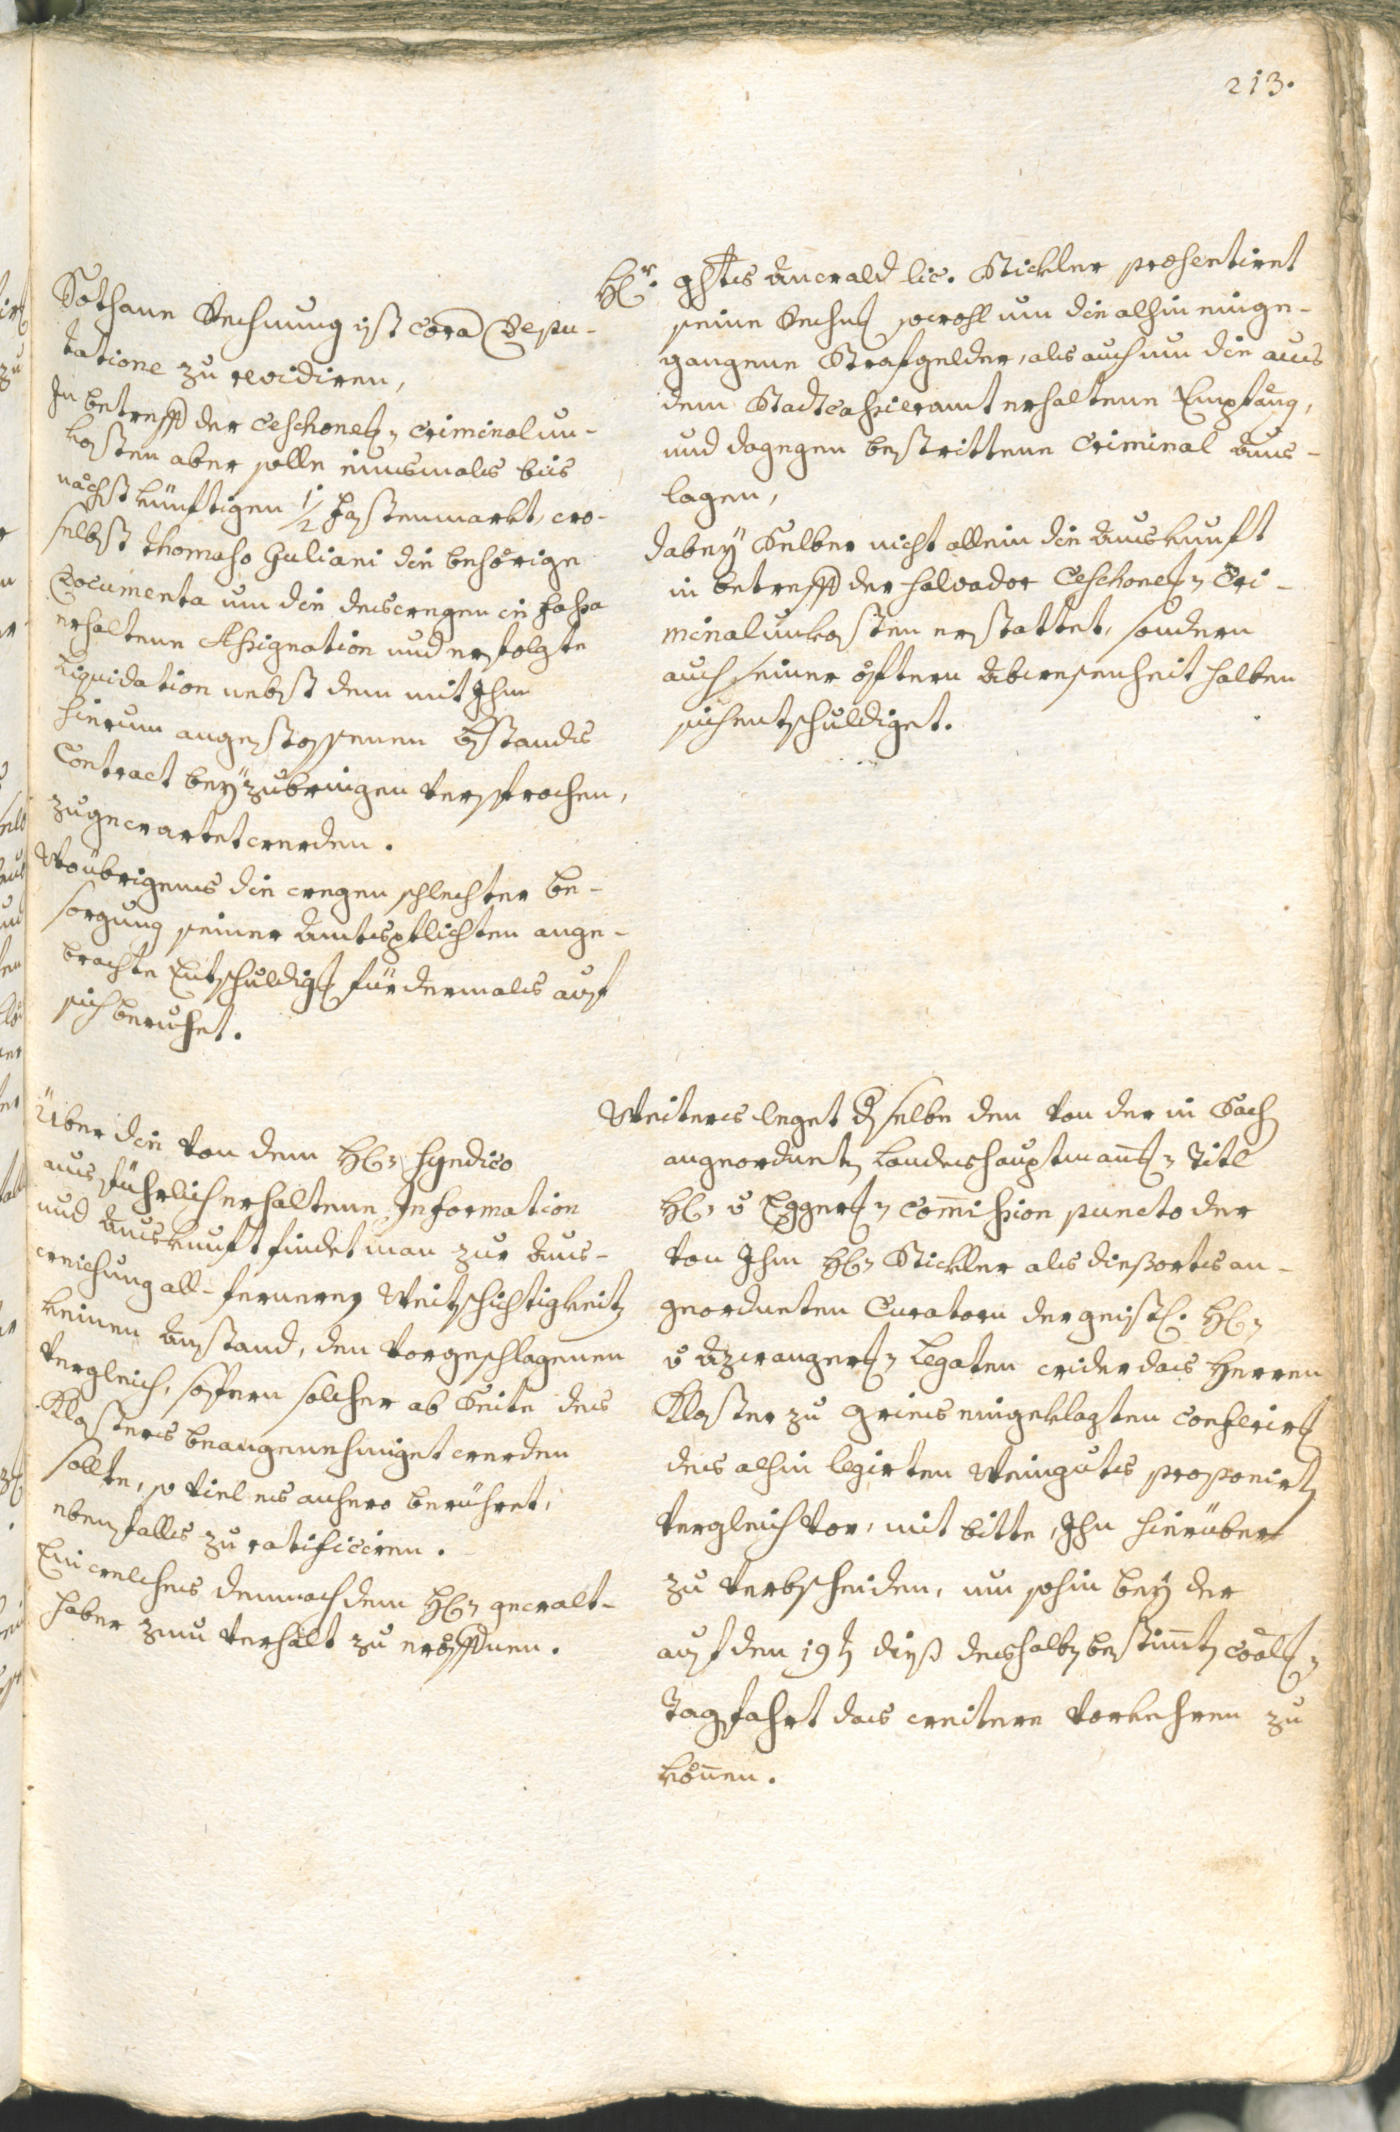 213.
Sothane Rechnung ist cora Depu-
tatione zu revidiren,
In betreff der Ceschonel: Criminalun-
kosten aber solle einsmals bis
nächst künftigen 1/2 Fastenmarkt, wo-
selbst Thomaso Guliani die behörige
Documenta um die deswegen in Fassa
erhaltene Assignation und erfolgte
Liquidation nebst dem mit Ihm
hierum angestossenen Bstands
Contract beyzubringen versprochen,
zugewartet werden.
Woübrigens die wegen schlechter be-
sorgung seiner Amtspflichten ange-
brachte Entschuldig: für dermals auf
sich beruhet.
Über die von dem H: Syndico
ausführlich erhaltene Information
und Auskunft findet man zur Aus-
weichung all-fernerer Weitschichtigkeit
keinen Anstand, den vorgeschlagenen
Vergleich, sofern solcher ab Seite des
Klosters beangenehmiget werden
sollte, so viel es anhero berühret,
ebenfalls zu ratificiren.
Ein welches demnach dem H: gewalt-
haber zum Verhalt zu eröffnen.
H: ghts Anwald lic. Stickler præsentiret
seine Rechng sowohl um die alhin einge-
gangene Strafgelder, als auch um die aus
dem Stadtcassieramt erhaltene Empfäng,
und dagegen bestrittene Criminal Aus-
lagen,
dabey Selber nicht allein die Auskunft
in betreff der Salvador Ceschonel: Cri-
minalunkosten erstattet, sondern
auch seiner öftern Abwesenheit halben
sich entschuldiget.
Weiters leget dselbe den von der in Sach
angeordnetn Landshauptmañ: Titl
H: v Egger: Com̄ission puncto der
von Ihm H: Stickler als dießorts an-
geordneten Curatorn der geistl: H:
v Azwanger: Legaten wider das Herren
Kloster zu Gries eingeklagten
des alhin legirten Weinguts proponirtn
Vergleich vor, mit bitte, Ihn hierüber
zu verbscheiden, um sohin bey der
auf den 19tn dieß deshalbn bestim̄tn
Tagfahrt das weitere vorkehren zu
köñen.